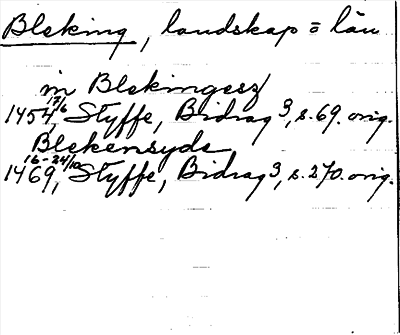 Bleking, landskap o län
in Blekingess
1454 17/6, Styffe, Bidrag 3, s. 69. orig.
Blekensyde
1469 16-24/10, Styffe, Bidrag 3, s. 270. orig.